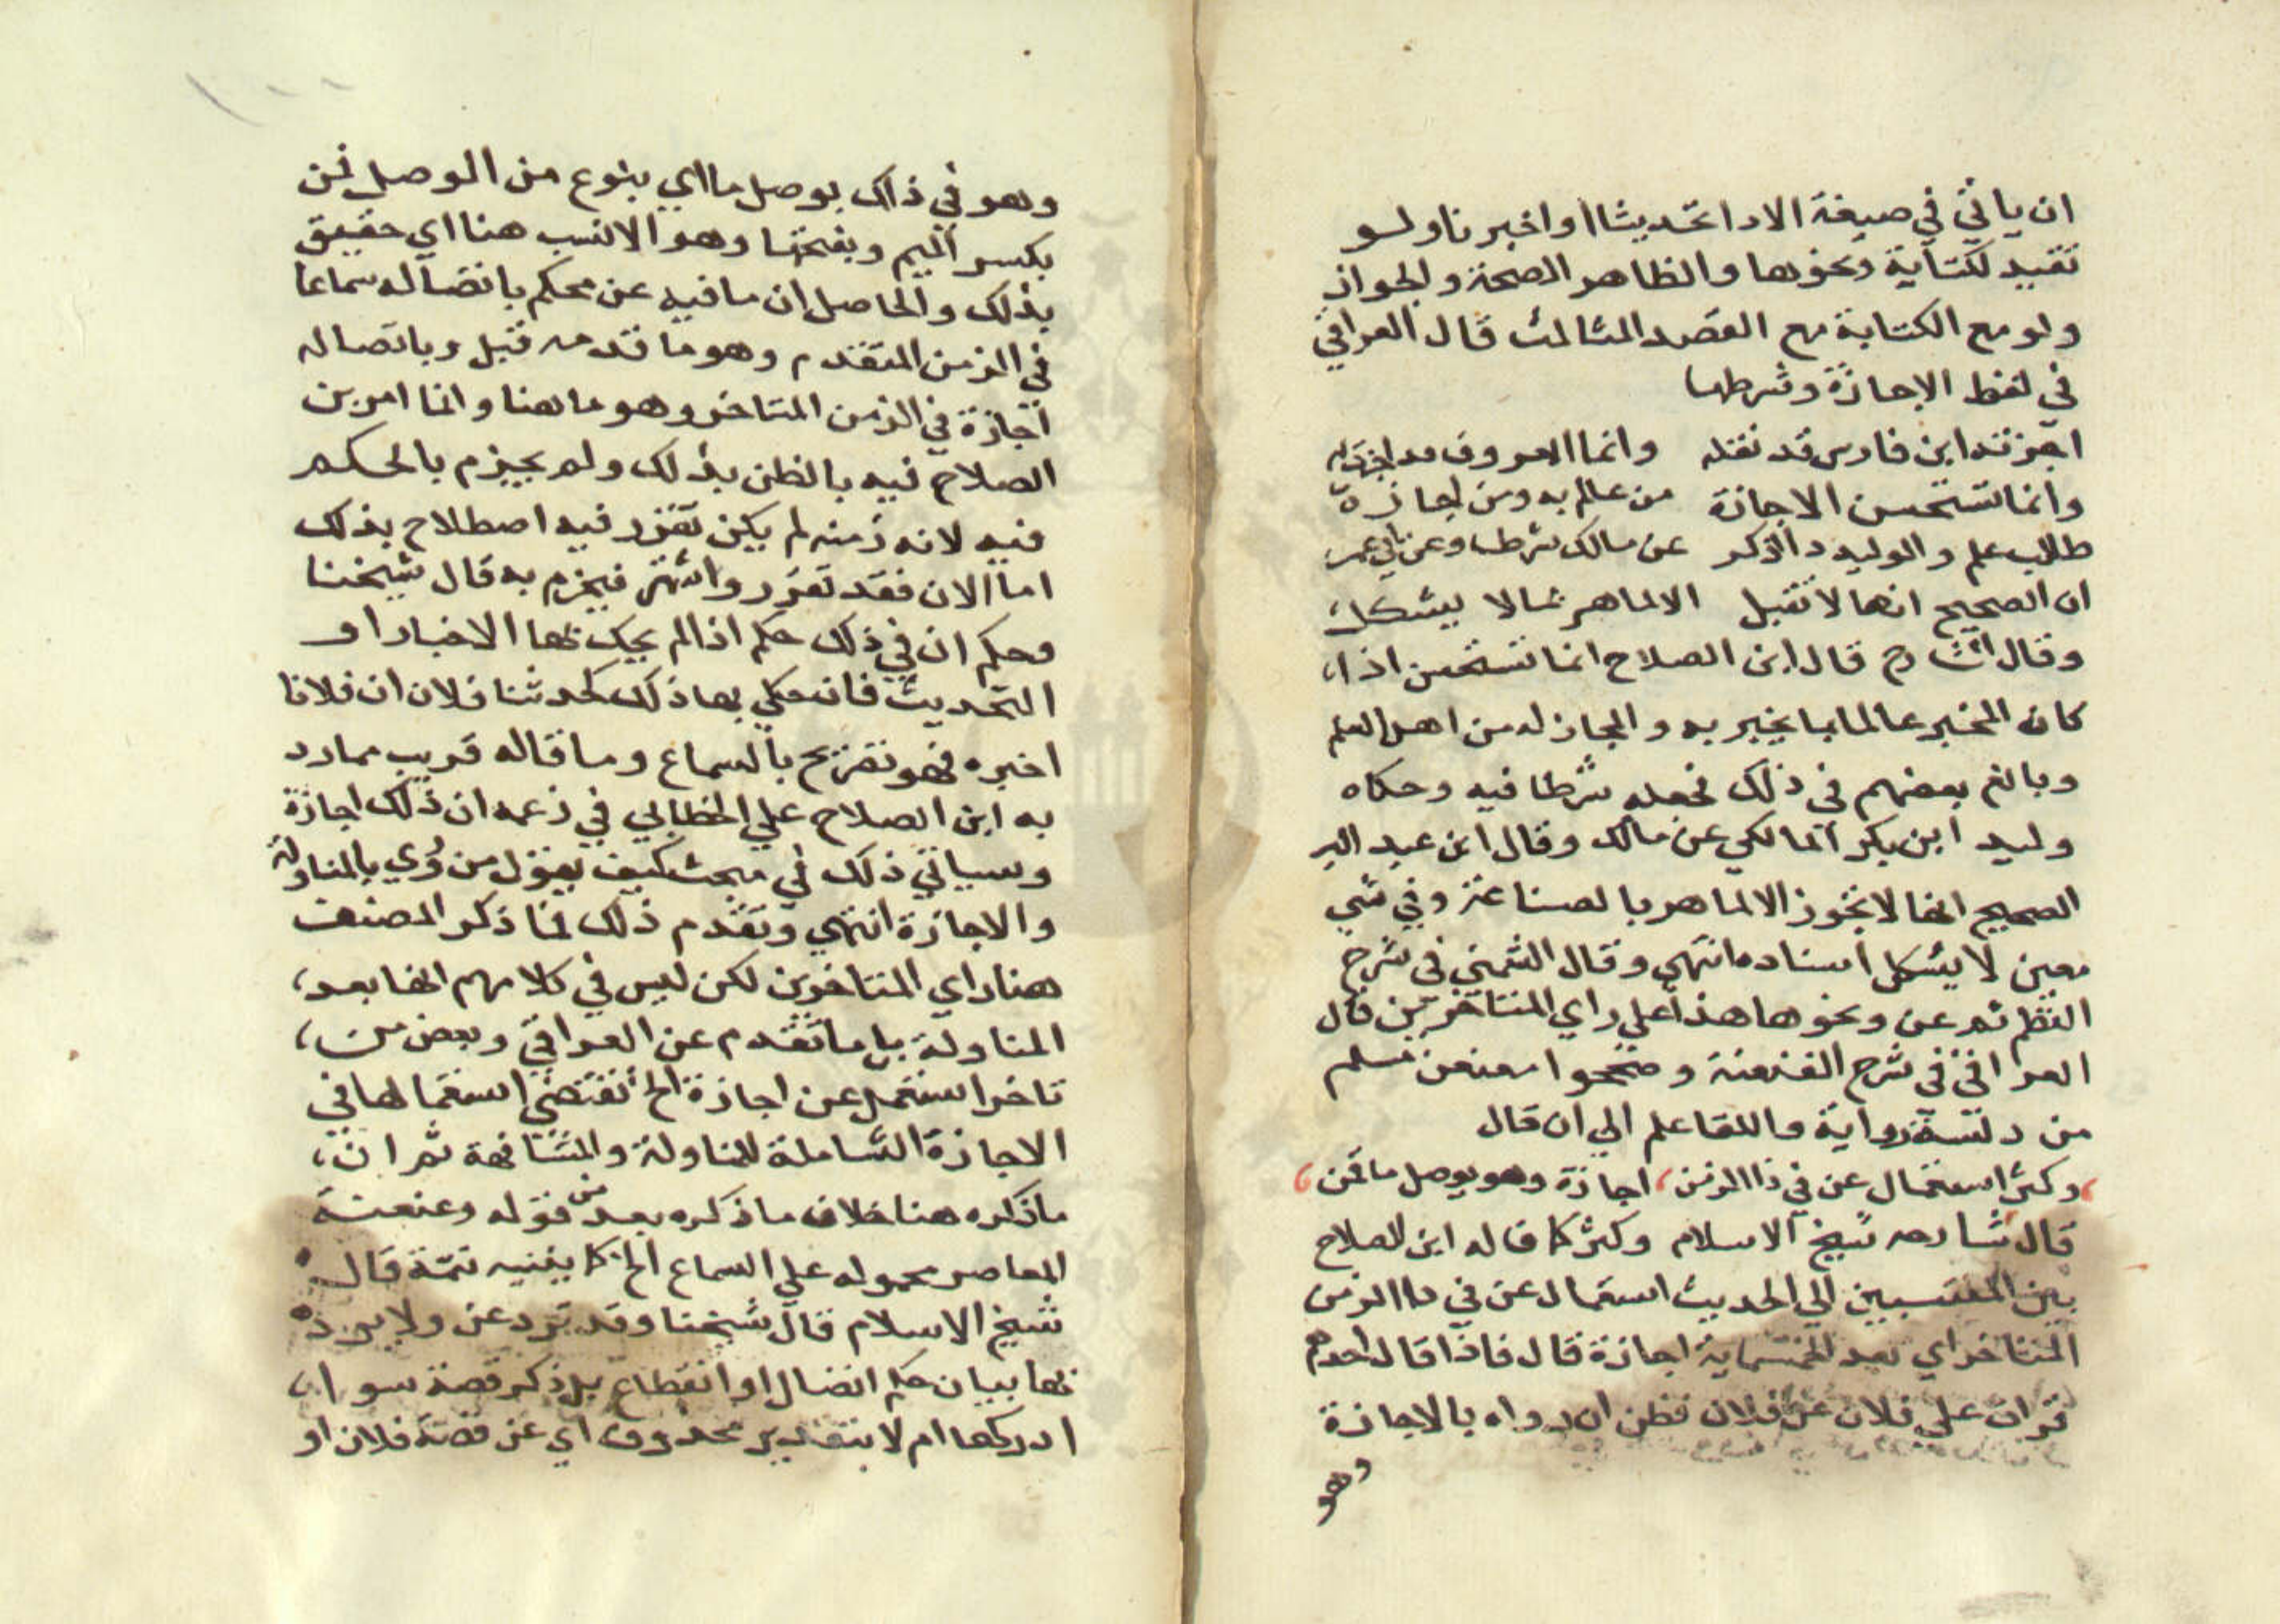 ان ياتي في صيغة الادا تحديثا او اخبرنا ولو
تقيد لكتابة ونحوها والظاهر الصحة والجواز
ولو مع الكتابة مع القصد الثالث قال العراقي
في لفظ الاجازة وشرطها
اجزته ابن فارس قد نقله وانما المعروف قد اجزت له
وانما تستحسن الاجازة من عالم به ومن اجازه
طالب علم والوليد ذا ذكر عن مالك شرطا وعن ابي عمر
ان الصحيح انها لا تقبل الا لماهر بما لا يشكل
وقال الشارح قال ابن الصلاح انما تستحسن اذا
كان المخبر عالما بما يخبر به والمجاز له من اهل العلم
وبالغ بعضهم في ذلك فجعله شرطا فيه وحكاه
وليد ابن بكر المالكي عن مالك وقال ابن عبد البر
الصحيح انها لا تجوز الا لماهر بالصناعة وفي شي
معين لا يشكل اسناده انتهي وقال الشمني في شرح
النظم ثم عن ونحوها هذا علي راي المتاخرين قال
العراقي في شرح العنعنة وصححوا معنعن سلم
من دلسة رواية واللقا علم الي ان قال
وكثر استعمال عن في ذا الزمن اجازة وهو بوصل ما قمن
قال شارحه شيخ الاسلام وكثر كما قاله ابن الصلاح
بين المنتسبين الي الحديث استعمال عن في ذا الزمن
المتاخر اي بعد الخمسماية اجازة قال فاذا قال احدهم
قرات علي فلان عن فلان فظن انه رواه بالاجازة
وهو
وهو في ذاك بوصل ما اي بنوع من الوصل قمن
بكسر الميم وبفتحها وهو الانسب هنا اي حقيق
بذلك والحاصل ان ما فيه عن محكم باتصاله سماعا
في الزمن المتقدم وهو ما قدمه قبل وباتصاله
اجازة في الزمن المتاخر وهو ما هنا وانما امر بن
الصلاح فيه بالظن بذلك ولم يجزم بالحكم
فيه لانه زمنه لم يكن تقرر فيه اصطلاح بذلك
اما الان فقد تقرر واشتهر فيجزم به قال شيخنا
وحكم ان في ذلك حكم اذا لم يحك بها الاخبار او
التحديث فان حكي بها ذلك كحدثنا فلان ان فلانا
اخبره فهو تصريح بالسماع وما قاله قريب مما رد
به ابن الصلاح علي الخطابي في زعمه ان ذلك اجازة
وسياتي ذلك في مبحث كيف يقول من روي بالمناولة
والاجازة انتهي وتقدم ذلك لما ذكر المصنف
هنا راي المتاخرين لكن ليس في كلامهم انها بعد
المناولة بل ما تقدم عن العراقي وبعض من
تاخر استعمل عن اجازة الخ تقتضي استعمالها في
الاجازة الشاملة للمناولة والمشافهة ثم ان
ما ذكره هنا خلاف ما ذكره بعد من قوله وعنعنة
المعاصر محموله علي السماع الخ كما بينيه تتمة قال
شيخ الاسلام قال شيخنا وقد ترد عن ولا يراد
بها بيان حكم اتصال او انقطاع بل ذكر قصة سوا
ادركها ام لا بتقدير محذوف اي عن قصة فلان او